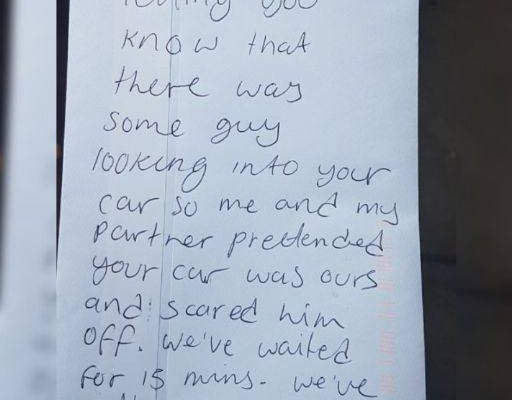 you
know that
there was
some guy
looking into your
car so me and my
partner pretended
your car was ours
and scared him
off. we've waited
for 15 mins. we've